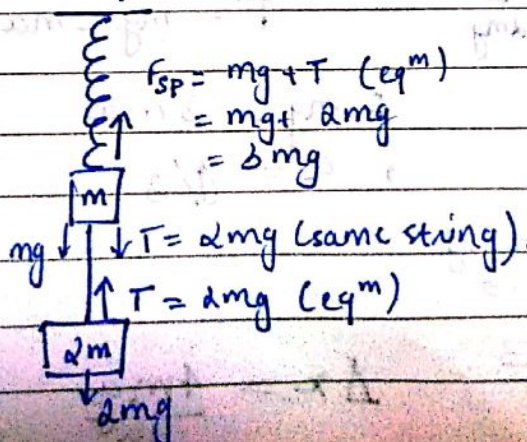 Fsp = mg + T (eqᵐ)
= mg + 2mg
= 3mg
m
mg T = 2mg (same string)
T = 2mg (eqᵐ)
2m
2mg